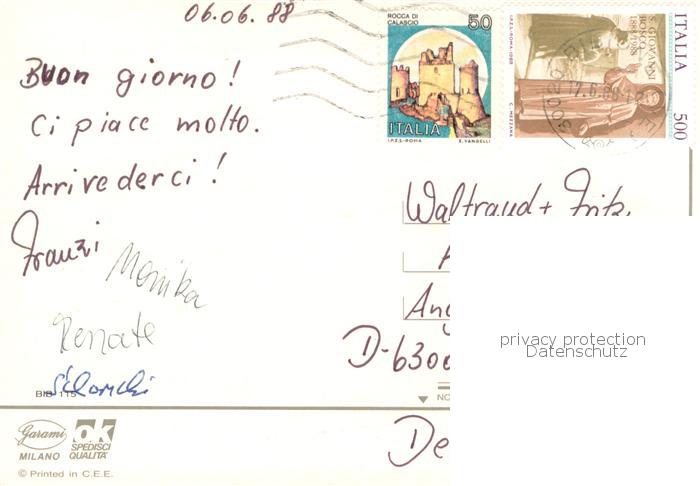 06.06.88
Buon giorno!
Ci piace molto.
Arrivederci!
Franzi
Monika
Renate
ROCCA DI CALASCIO
50
ITALIA
I.P.Z.S.-ROMA
E. VANGELLI
ITALIA
500
S. GIOVANNI
BOSCO
1888-1988
I.P.Z.S.-ROMA-1988
C. MEZZANA
Waltraud + Fritz
Ang
D-6300
De
privacy protection
Datenschutz
BIB 115
NO
Garami
MILANO
ok
SPEDISCI
QUALITÀ
© Printed in C.E.E.